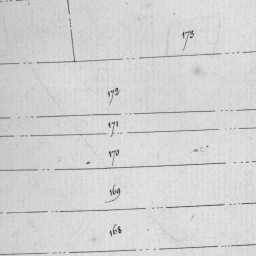 173
172
171
170
169
168